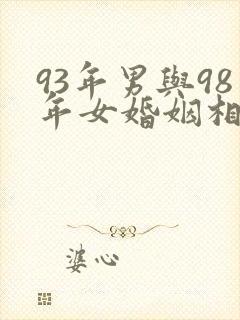 93年男與98
年女婚姻相
婆心